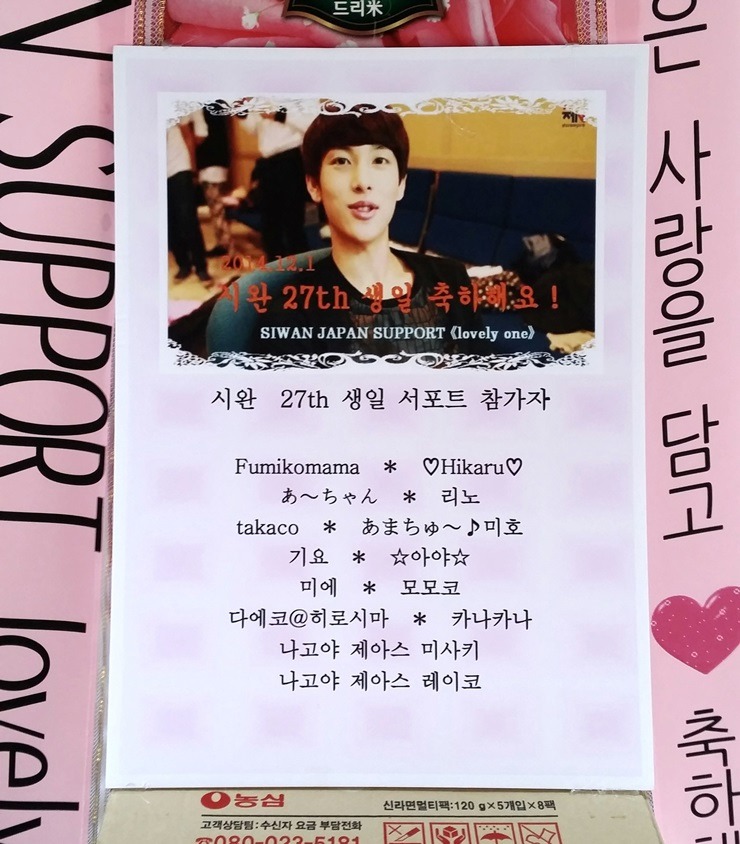 드리米
N SUPPORT lovely
2014.12.1
시완 27th 생일 축하해요 !
SIWAN JAPAN SUPPORT《lovely one》
시완 27th 생일 서포트 참가자
Fumikomama * ♡Hikaru♡
あ～ちゃん * 리노
takaco * あまちゅ～♪미호
기요 * ☆아야☆
미에 * 모모코
다에코@히로시마 * 카나카나
나고야 제아스 미사키
나고야 제아스 레이코
은 사랑을 담고 ♥ 축하해
농심
신라면멀티팩:120 g×5개입×8팩
고객상담팀:수신자 요금 부담전화
☎080-023-5181